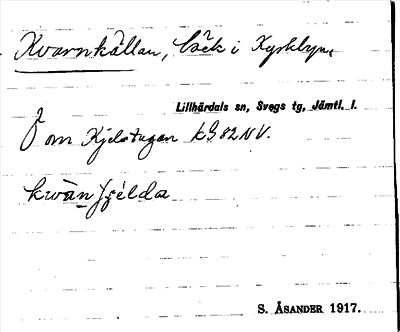 Kvarnkällan, bäck i Kyrkbyn,
Lillhärdals sn, Svegs tg, Jämtl. l.
Ö om Kjelstugan 82 NV.
kwàn
S. ÅSANDER 1917.